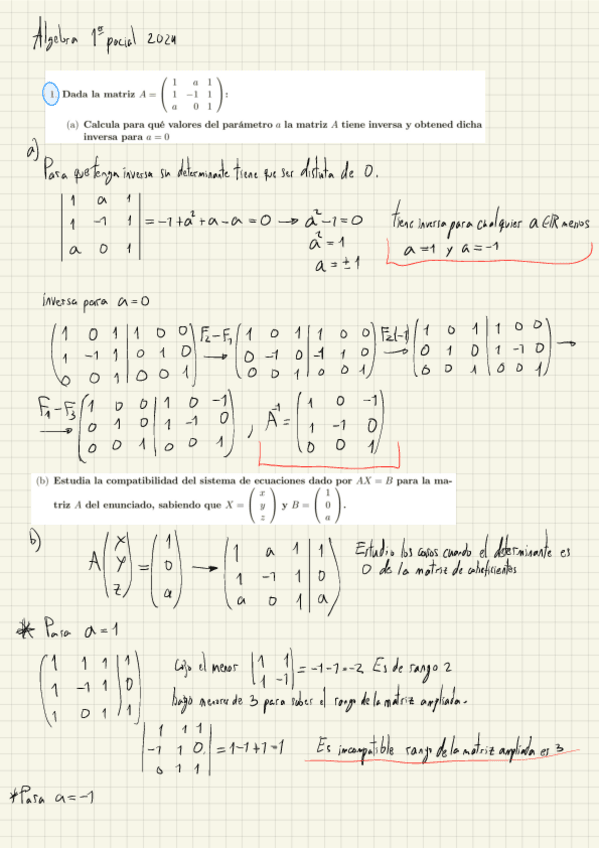 Algebra 1º pacial 2024
1 Dada la matriz A = ( 1 a 1 ; 1 −1 1 ; a 0 1 ) :
(a) Calcula para qué valores del parámetro a la matriz A tiene inversa y obtened dicha
inversa para a = 0
a)
Para que tenga inversa su determinante tiene que ser distuta de 0.
| 1 a 1 ; 1 -1 1 ; a 0 1 | = -1 + a² + a - a = 0 → a² - 1 = 0
a² = 1
a = ±1
tiene inversa para cualquier a ∈ ℝ menos
a = 1 y a = -1
inversa para a = 0
( 1 0 1 | 1 0 0 ; 1 -1 1 | 0 1 0 ; 0 0 1 | 0 0 1 ) F₂-F₁ → ( 1 0 1 | 1 0 0 ; 0 -1 0 | -1 1 0 ; 0 0 1 | 0 0 1 ) F₂(-1) → ( 1 0 1 | 1 0 0 ; 0 1 0 | 1 -1 0 ; 0 0 1 | 0 0 1 ) →
F₁-F₃ → ( 1 0 0 | 1 0 -1 ; 0 1 0 | 1 -1 0 ; 0 0 1 | 0 0 1 ) , A⁻¹ = ( 1 0 -1 ; 1 -1 0 ; 0 0 1 )
(b) Estudia la compatibilidad del sistema de ecuaciones dado por AX = B para la ma-
triz A del enunciado, sabiendo que X = ( x ; y ; z ) y B = ( 1 ; 0 ; a ) .
b)
A ( x ; y ; z ) = ( 1 ; 0 ; a ) → ( 1 a 1 | 1 ; 1 -1 1 | 0 ; a 0 1 | a )
Estudio los casos cuando el determinante es
0 de la matriz de coheficientes
* Para a = 1
( 1 1 1 | 1 ; 1 -1 1 | 0 ; 1 0 1 | 1 )
Cojo el menor | 1 1 ; 1 -1 | = -1-1 = -2 Es de rango 2
hago menores de 3 para saber el rango de la matriz ampliada.
| 1 1 1 ; -1 1 0 ; 0 1 1 | = 1-1+1=1
Es incompatible rango de la matriz ampliada es 3
* Para a = -1